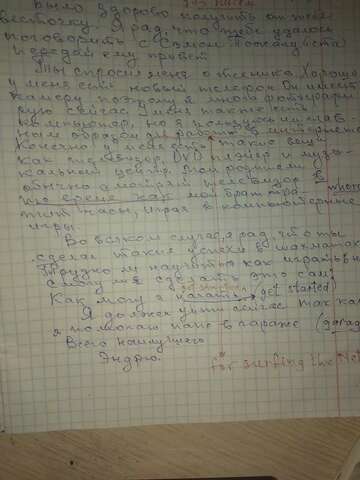 было здорово получить от тебя
весточку. Я рад, что тебе удалось
поговорить с Сэмом. Пожалуйста
передай ему привет
Ты спросил меня о технике. Хорошо
у меня есть новый телефон. Он имеет
камеру поэтому я много фотографи
рую сейчас. У меня также есть
компьютер, но я пользуюсь им глав-
ным образом для работы в интернете
Конечно у меня есть такие вещи
как телевизор, DVD плэйер и музы-
кальный центр. Мои родители
обычно смотрят телевизор в
то время как мой брат тра-
тит часы, играя в компьютерные
игры.
Во всяком случае я рад, что ты
сделал такие успехи в шахматах
Трудно ли научиться как играть в
смогу ли я сделать это сам.
get started
Как могу я начать (get started)
Я должен уйти сейчас так как
я помогаю папе в гараже (garag
Всего наилучшего
Эндрю.
* for surfing the Net